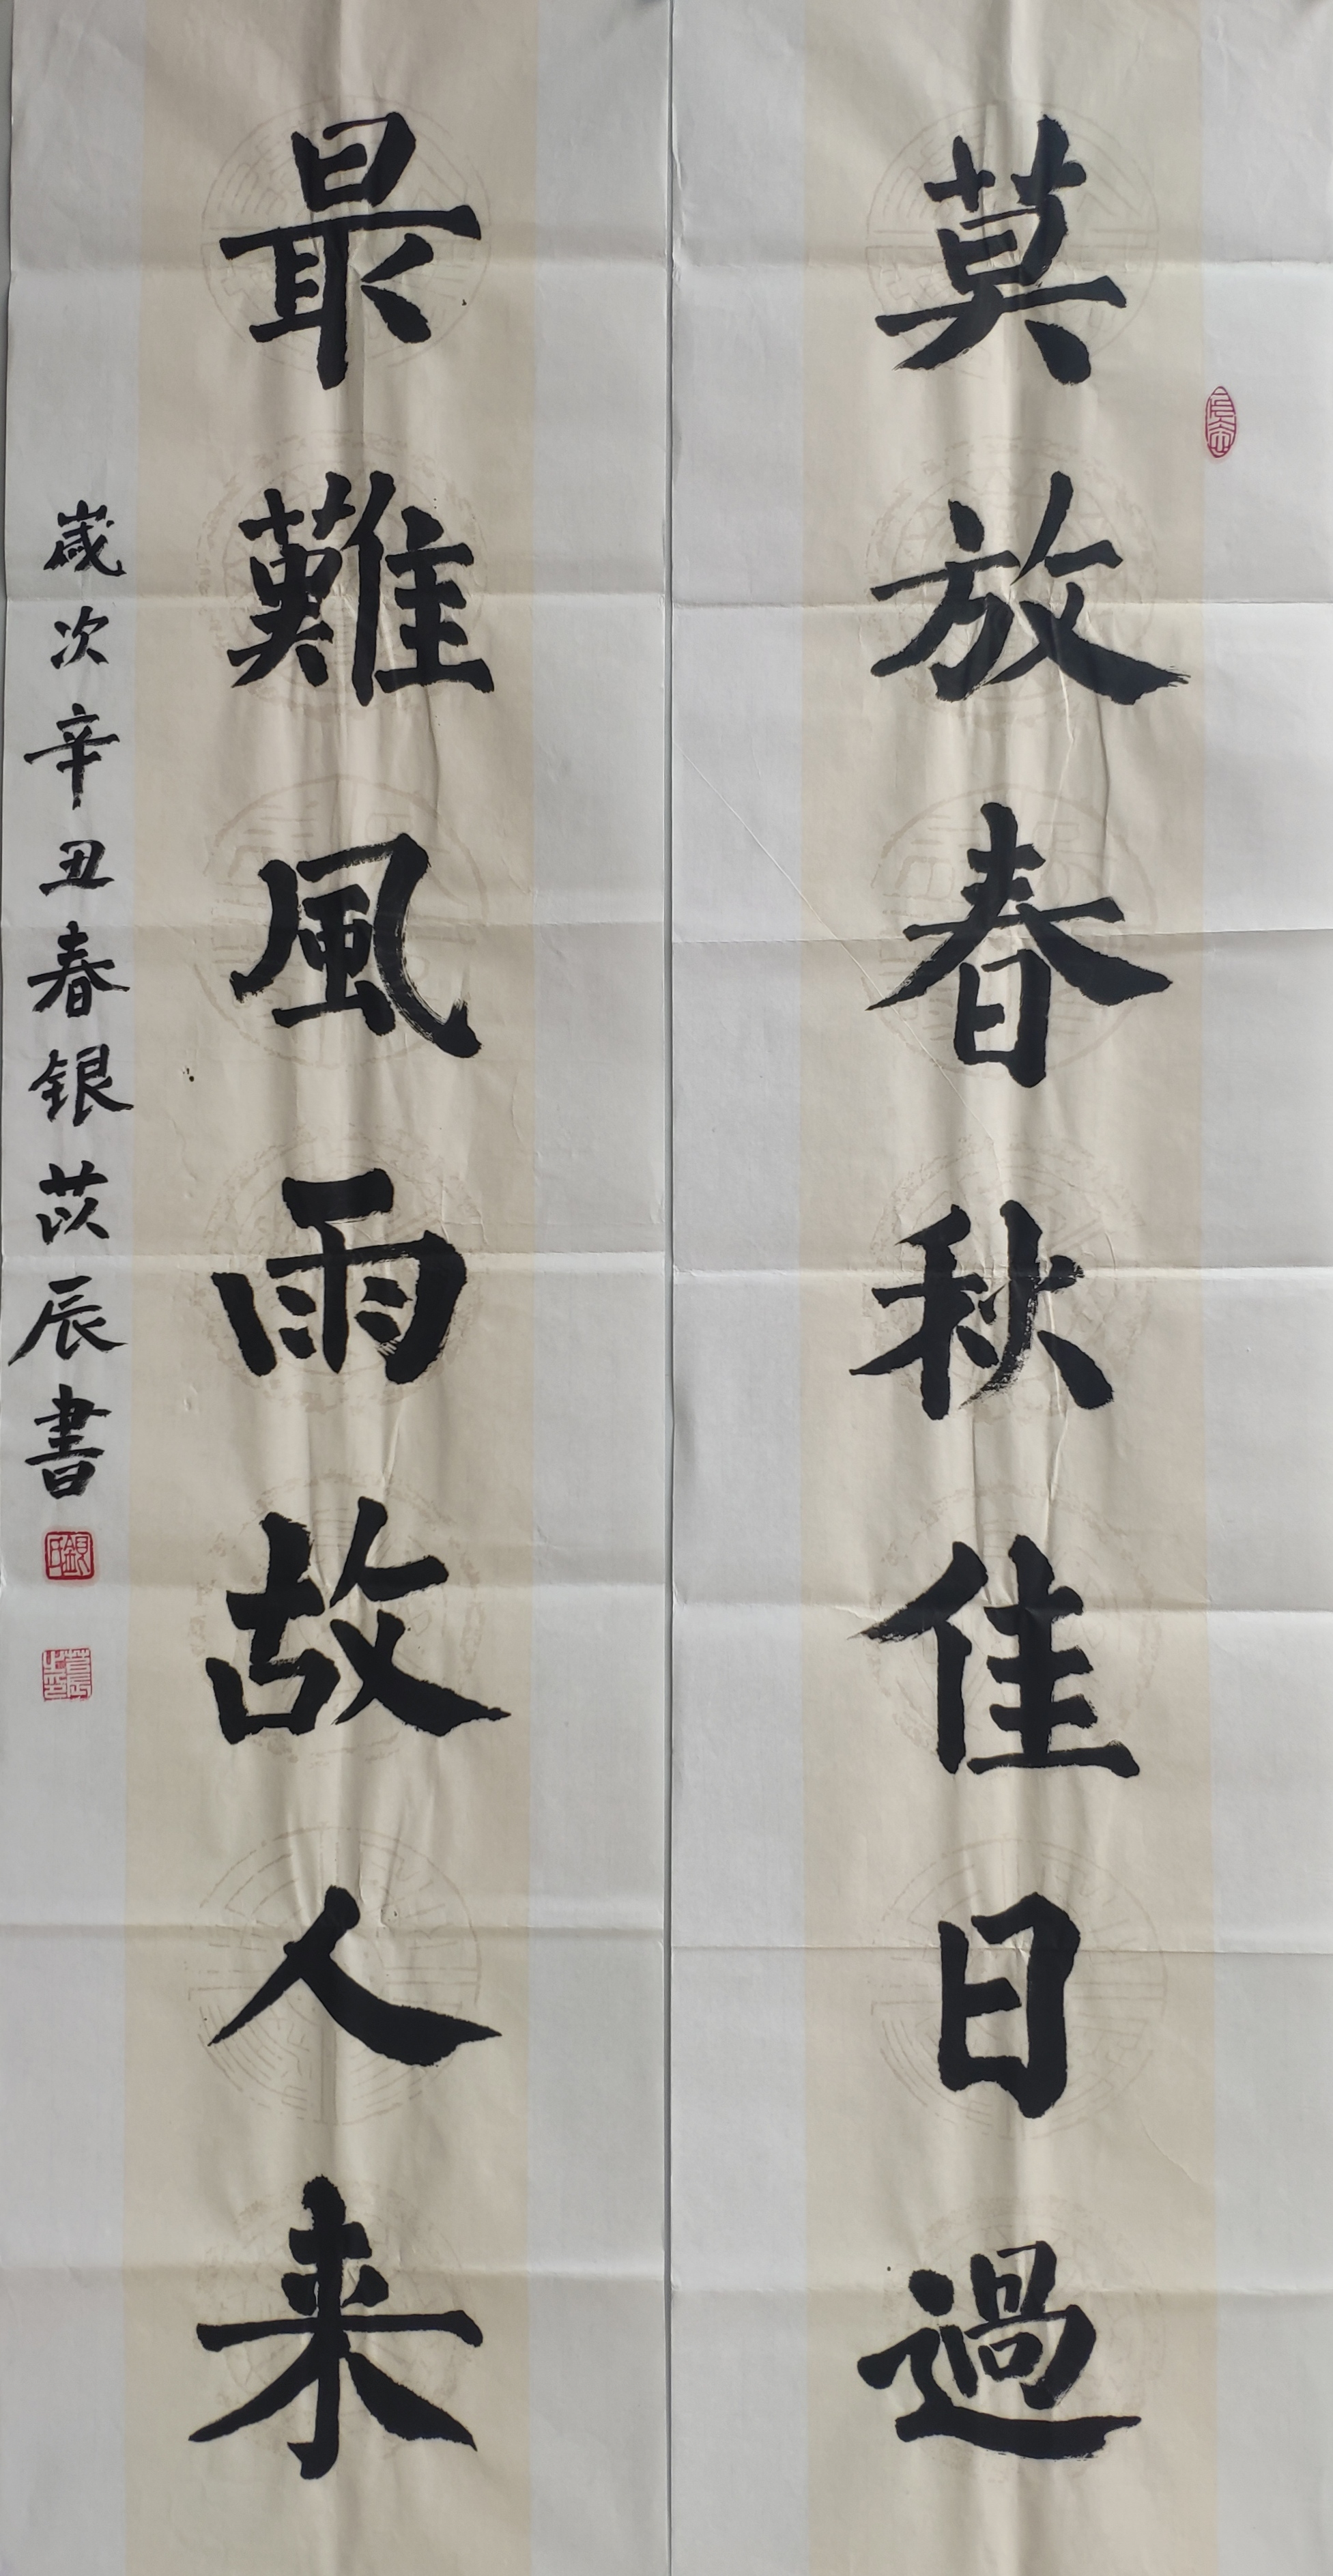 莫放春秋佳日過
最難風雨故人来
歲次辛丑春银苡辰書